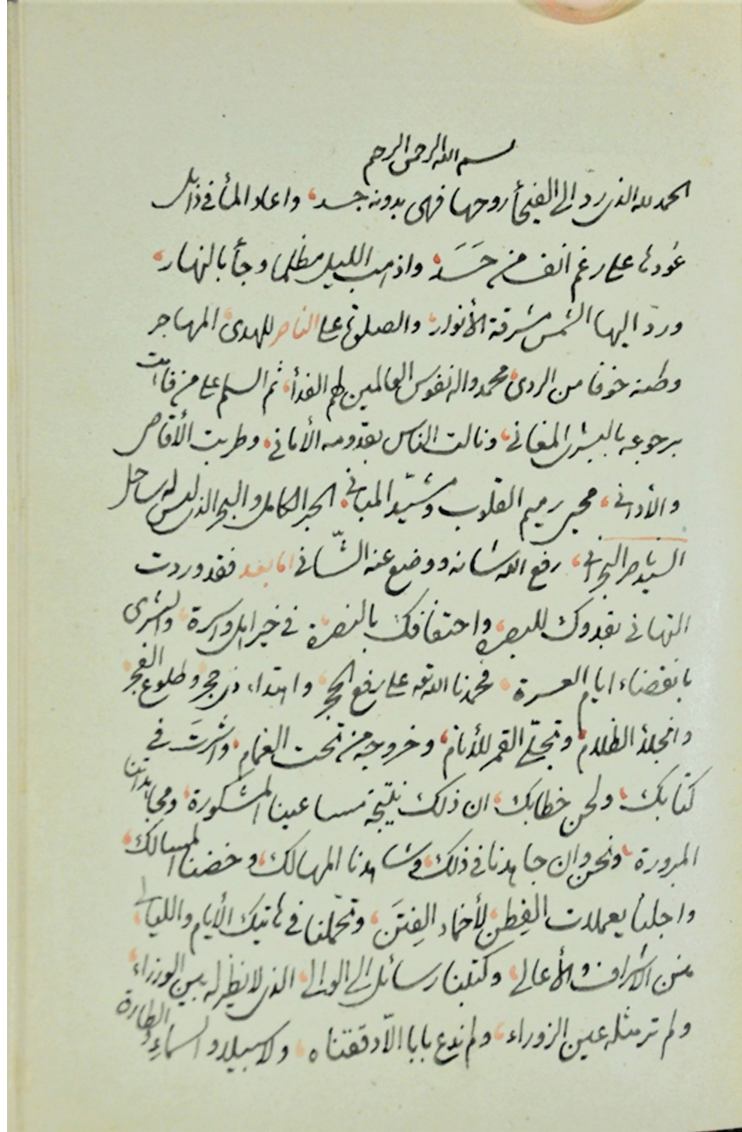 بسم الله الرحمن الرحيم
الحمد لله الذي ردّ الى الفيحأ روحها فهي بدونه جسد، واعاد المأ في ذابل
عُودها على رغم انف من حَسَدَ، واذهب الليل مظلما وجأ بالنهار،
وردّ اليها الشمس مشرقة الأنوار، والصلوة على الناصر للهدى، المهاجر
وطنه خوفا من الردى، محمد واله نفوس العالمين لهم الفدأ، ثم السلم على من فازت
برجوعه بالبشرى المغاني، ونالت الناس بقدومه الأماني، وطربت الأقاصي
والأداني، محيي رميم القلوب ومشيّد المباني، الحبر الكامل والبحر الذي ليس له ساحل
السيد ناصر البحراني، رفع الله شانه ووضع عنه الشّاني اما بعد فقد وردت
التهاني بقدومك للبصرة، واحتفافك بالنصرة، في خير اهل واسرة، والبشرى
بانقضاء ايام العسرة، فحمدنا الله تعه على رفع الحجر، وطلوع الفجر
وانجلاء الظلام، وتجلّي القمر للأنام، وخروجه من تحت الغمام، واشرتَ في
كتابك، ولحن خطابك، ان ذلك نتيجة مساعينا المشكورة، ومجاهداتنا
المبرورة، ونحن وان جاهدنا في ذلك، وشاهدنا المهالك، وخضنا المسالك،
واجلنا يعملات الفِطن، لأخماد الفِتَن، وتحمّلنا في هاتيك الأيام والليالي،
منن الاشراف والأعالي، وكتبنا رسائل الى الوالي، الذي لا نظير له بين الوزراء،
ولم تر مثله عين الزوراء، ولم ندع بابا الّا دققناه، ولا سبيلا والسماء والطارق